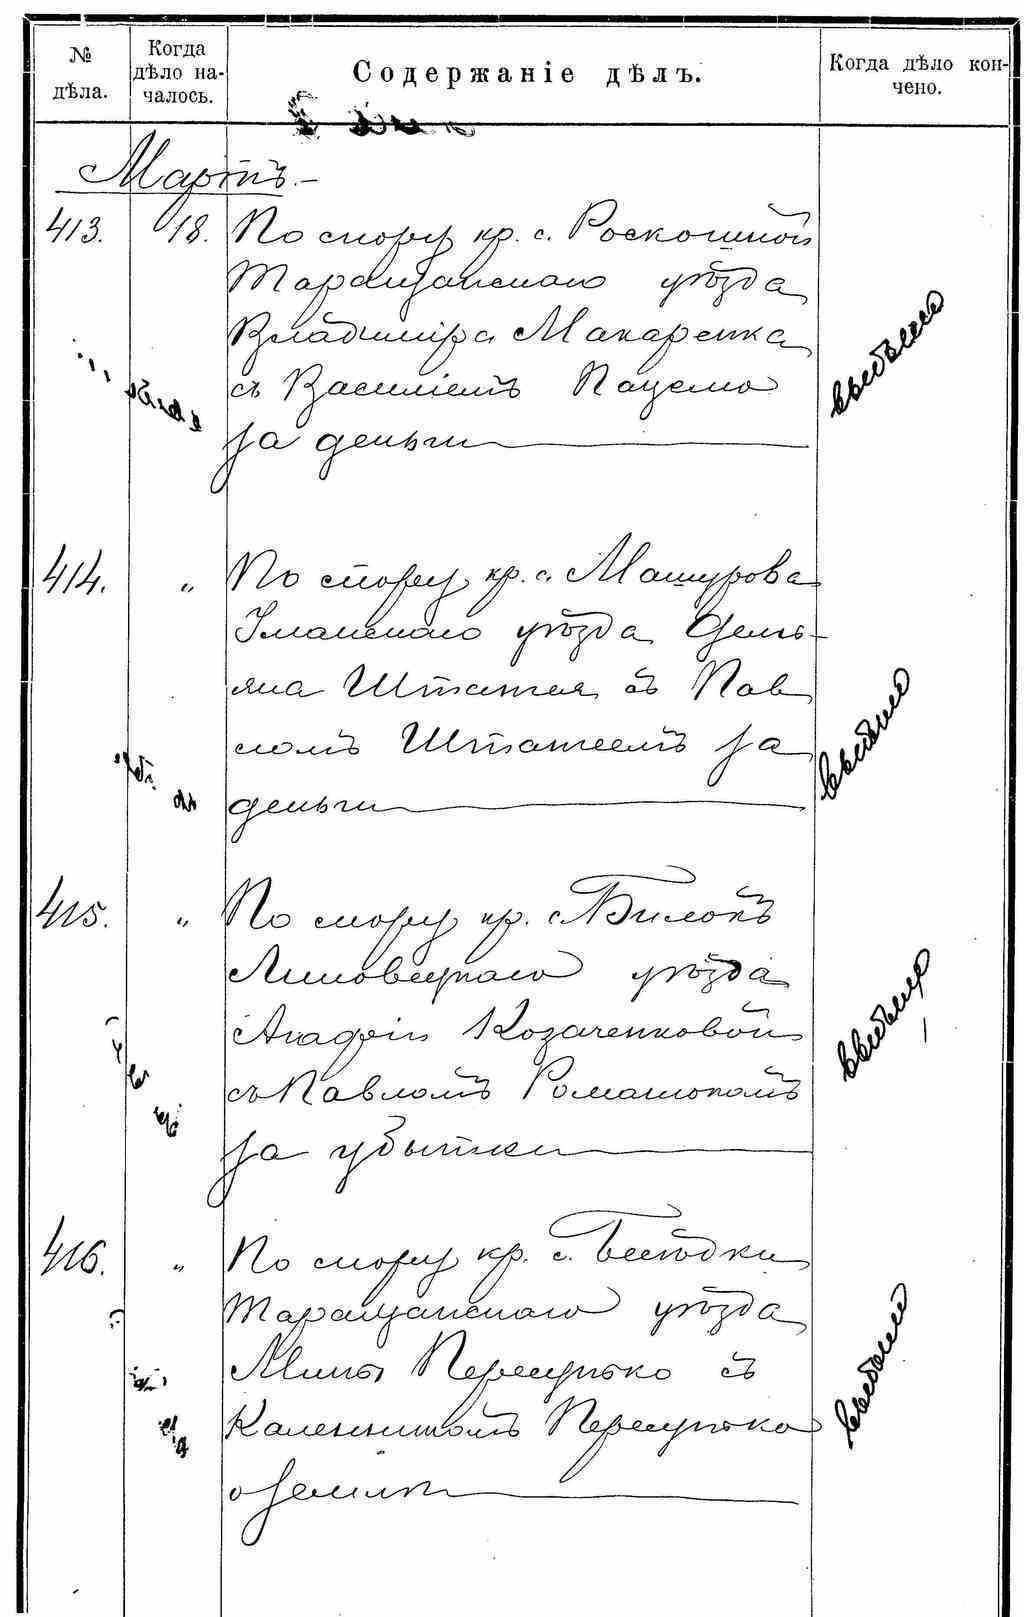 № дѣла.
Когда дѣло началось.
Содержаніе дѣлъ.
Когда дѣло кончено.
Мартъ.
413. 18. По спору кр. с. Роскошной
Таращанскаго уѣзда
Владиміра Макаренка
съ Василіемъ
за деньги
414. „ По спору кр. с. Машурова
Уманскаго уѣзда Демь-
яна Штатея съ Пав
ломъ Штатеемъ за
деньги
415. „ По спору кр. с. Билокъ
Липовецкаго уѣзда
Агафіи Козаченковой
съ Павломъ Романюкомъ
за убытки
416. „ По спору кр. с. Бесѣдки
Таращанскаго уѣзда
Мины съ
Каленникомъ
о землѣ